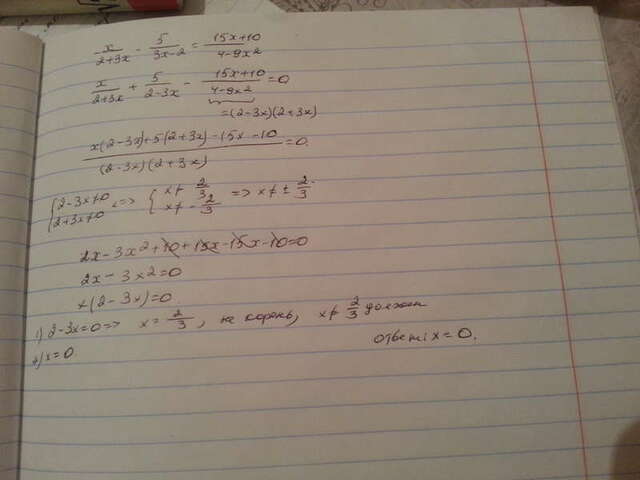 x/(2+3x) - 5/(3x-2) = (15x+10)/(4-9x²)
x/(2+3x) + 5/(2-3x) - (15x+10)/(4-9x²) = 0
=(2-3x)(2+3x)
(x(2-3x)+5(2+3x)-15x-10)/((2-3x)(2+3x)) = 0
{2-3x≠0 2+3x≠0 <=> {x≠ 2/3 x≠ -2/3 => x≠ ± 2/3.
2x-3x²+10+15x-15x-10=0
2x-3x²=0
x(2-3x)=0
1) 2-3x=0 => x= 2/3, не корень, x≠ 2/3 должен
2) x=0
ответ: x=0.